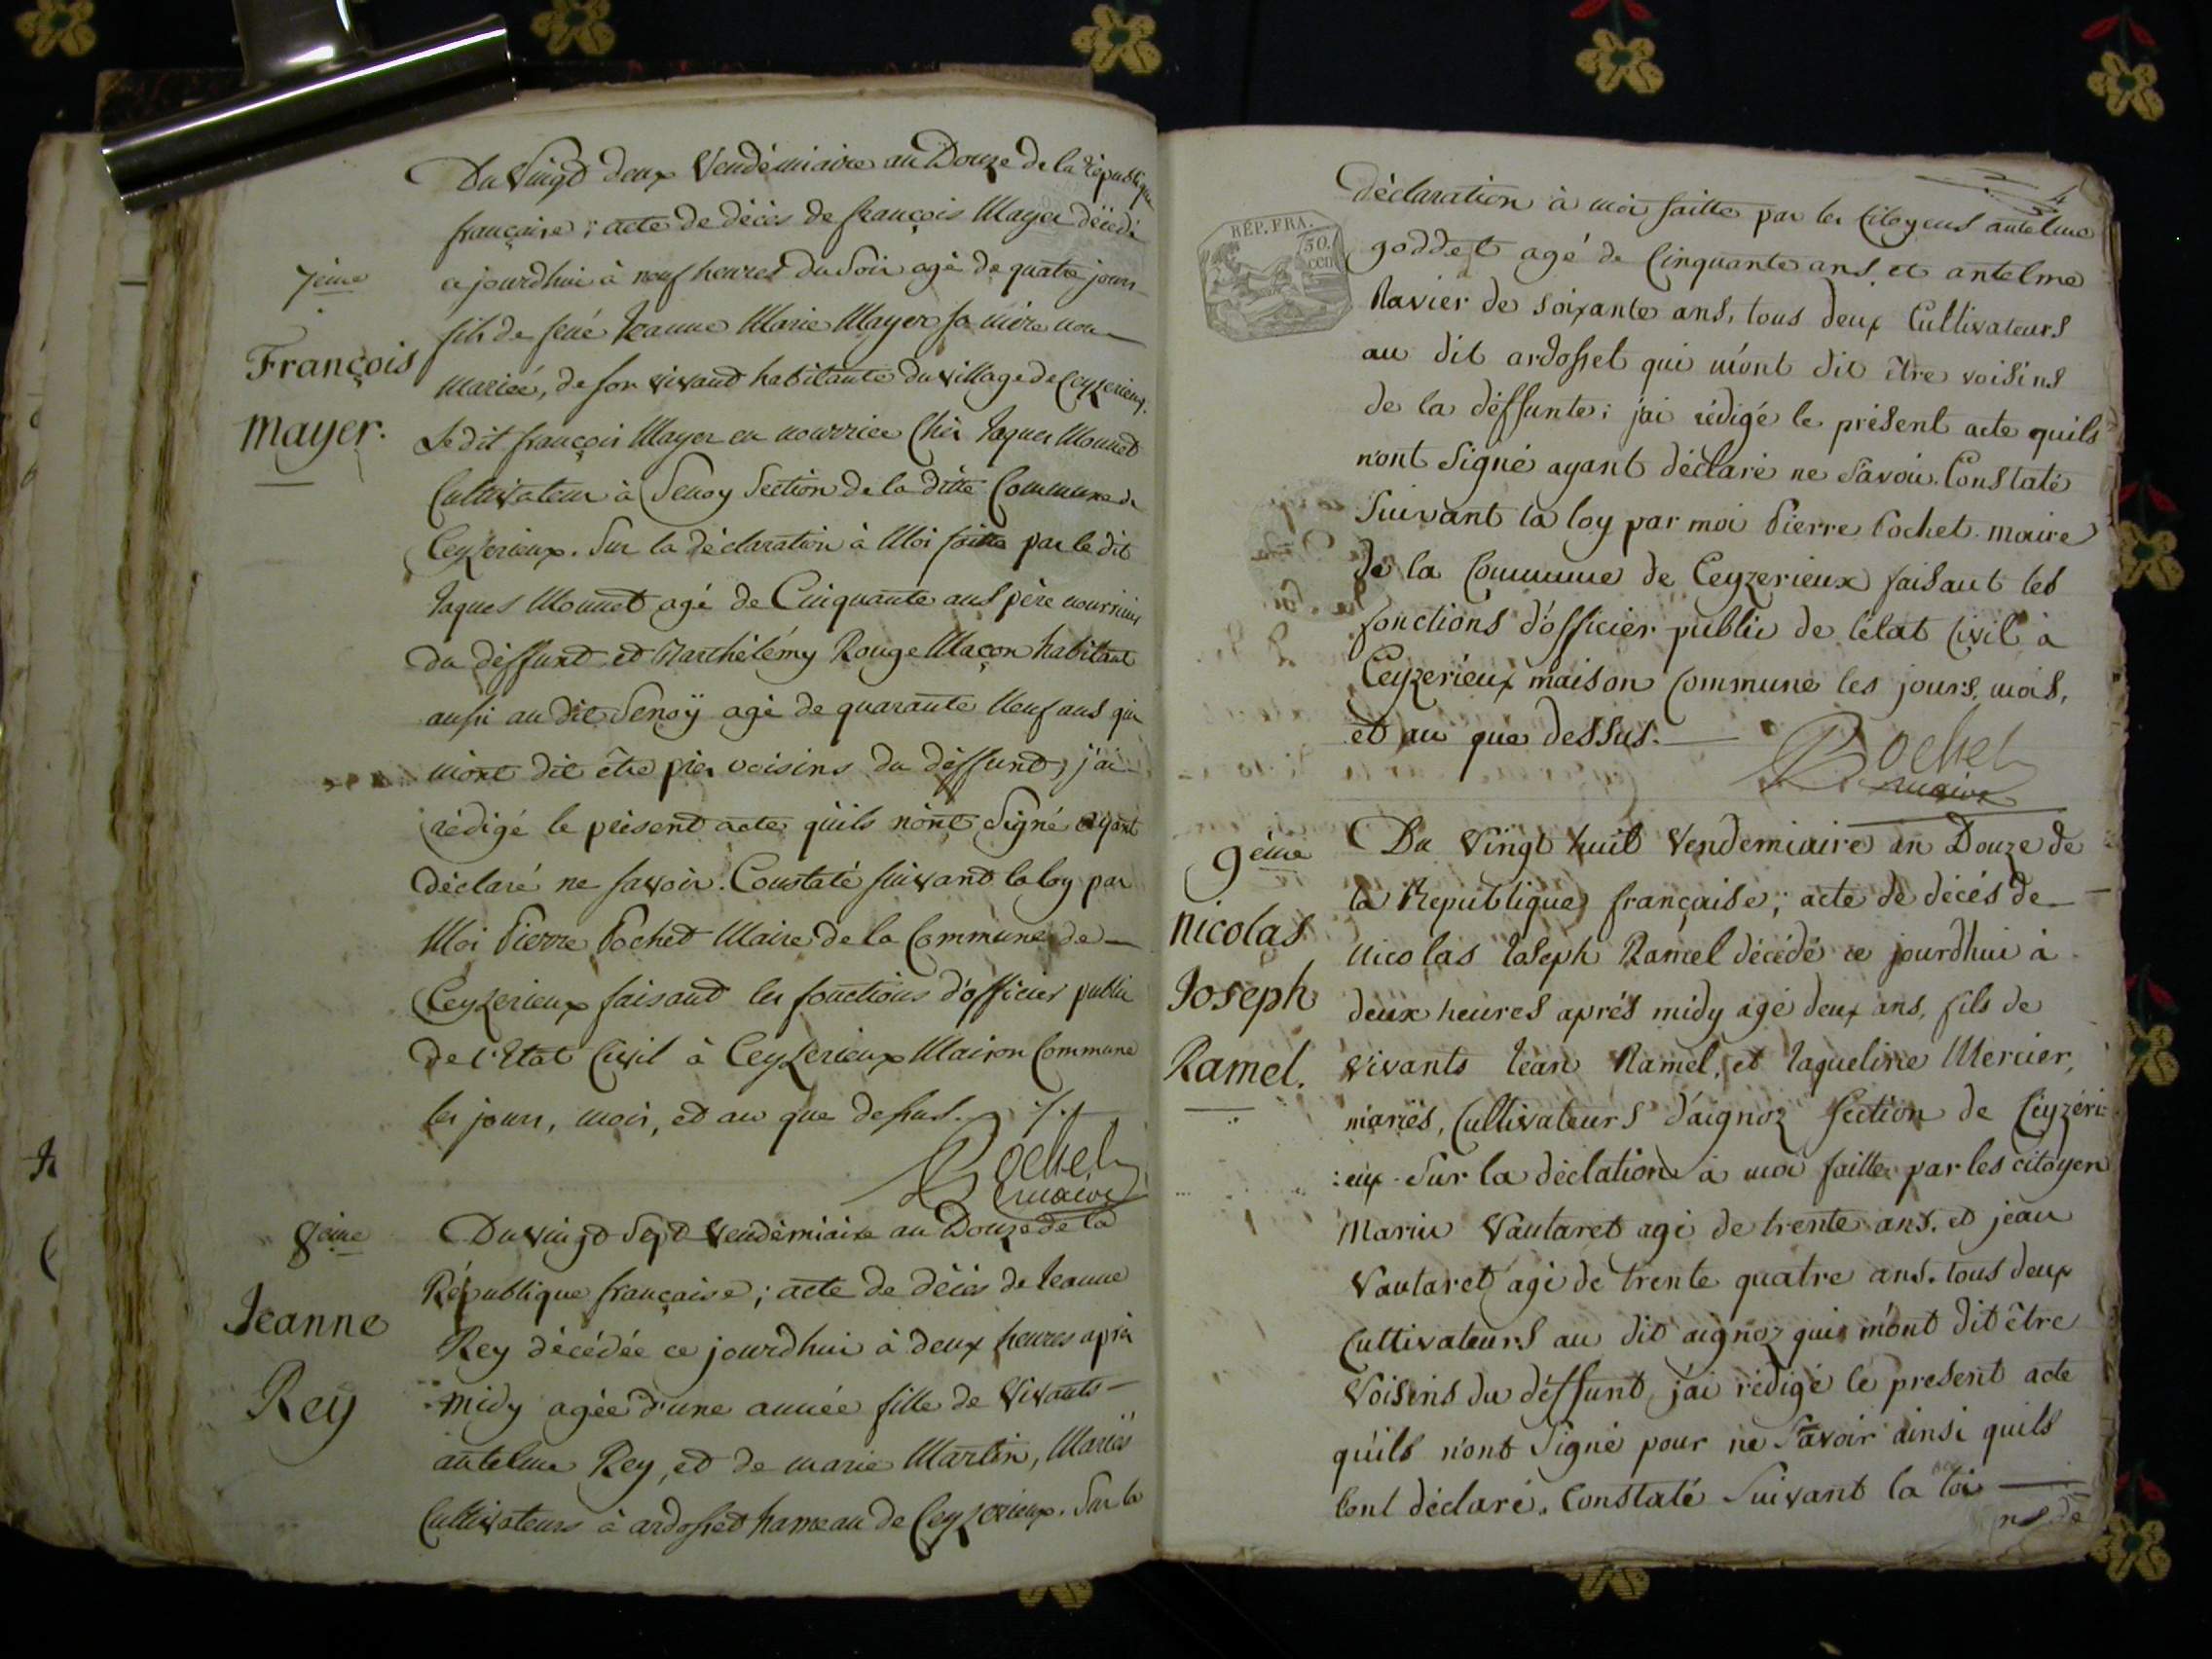 Du Vingt deux Vendémiaire an Douze de la République
française ; acte de décès de françois Mayer décédé
ce jourdhui à neuf heures du Soir agé de quatre jours
7ème
fils de feué Jeanne Marie Mayer sa mère non
François
mariéé, de son vivant habitante du village de Ceyzerieux.
mayer.
Le dit françois Mayer en nourrice Chés Jaques Monnet
Cultivateur à Senoy Section de la ditte Commune de
Ceyzerieux. Sur la déclaration à Moi faitte par le dit
Jaques Monnet agé de Cinquante ans père nourricier
du déffunt et Barthélémy Rouge Maçon habitant
aussi au dit Senoÿ agé de quarante Neuf ans qui
m'ont dit être près voisins du déffunt, j'ai
rédigé le présent acte quils n'ont Signé ayant
déclaré ne savoir. Constaté suivant la loy par
Moi Pierre Pochet Maire de la Commune de
Ceyzerieux faisant les fonctions d'officier public
de l'Etat Civil à Ceyzerieux Maison Commune
les jours, mois, et an que dessus.
Pochet
maire
8ème
Du vingt Sept Vendémiaire an Douze de la
République française ; acte de décès de Jeanne
Jeanne
Rey décédée ce jourdhui à deux heures après
Rey
midy agée d'une année fille de Vivants
antelme Rey, et de marie Martin, Mariés
Cultivateurs à ardosset hameau de Ceyzerieux. Sur la
4
RÉP. FRA.
50.
cen
déclaration à moi faitte par les Citoyens antelme
goddet agé de Cinquante ans et antelme
Ravier de soixante ans, tous deux Cultivateurs
au dit ardosset qui m'ont dit être voisins
de la déffunte ; jai rédigé le présent acte quils
n'ont Signé ayant déclaré ne Savoir. Constaté
Suivant la loy par moi Pierre Pochet maire
de la Commune de Ceyzerieux faisant les
fonctions d'officier public de l'état Civil à
Ceyzerieux maison Commune les jours, mois,
et an que dessus.
Pochet
maire
9ème
Du Vingt huit Vendemiaire an Douze de
la Republique française ; acte de décés de
nicolas
Nicolas Joseph Ramel décédé ce jourdhui à
Joseph
deux heures aprés midy agé deux ans, fils de
Ramel.
Vivants Jean Ramel, et Jaqueline Mercier,
mariés, Cultivateurs d'aignoz Section de Ceyzéri:
:eux. Sur la déclation à moi faitte par les citoyen
Marin Vautaret agé de trente ans. et jean
Vautaret agé de trente quatre ans. tous deux
Cultivateurs au dit aignoz qui m'ont dit être
Voisins du déffunt, jai rédigé le present acte
qu'ils n'ont Signé pour ne Savoir ainsi quils
l'ont déclaré. Constaté Suivant la loi